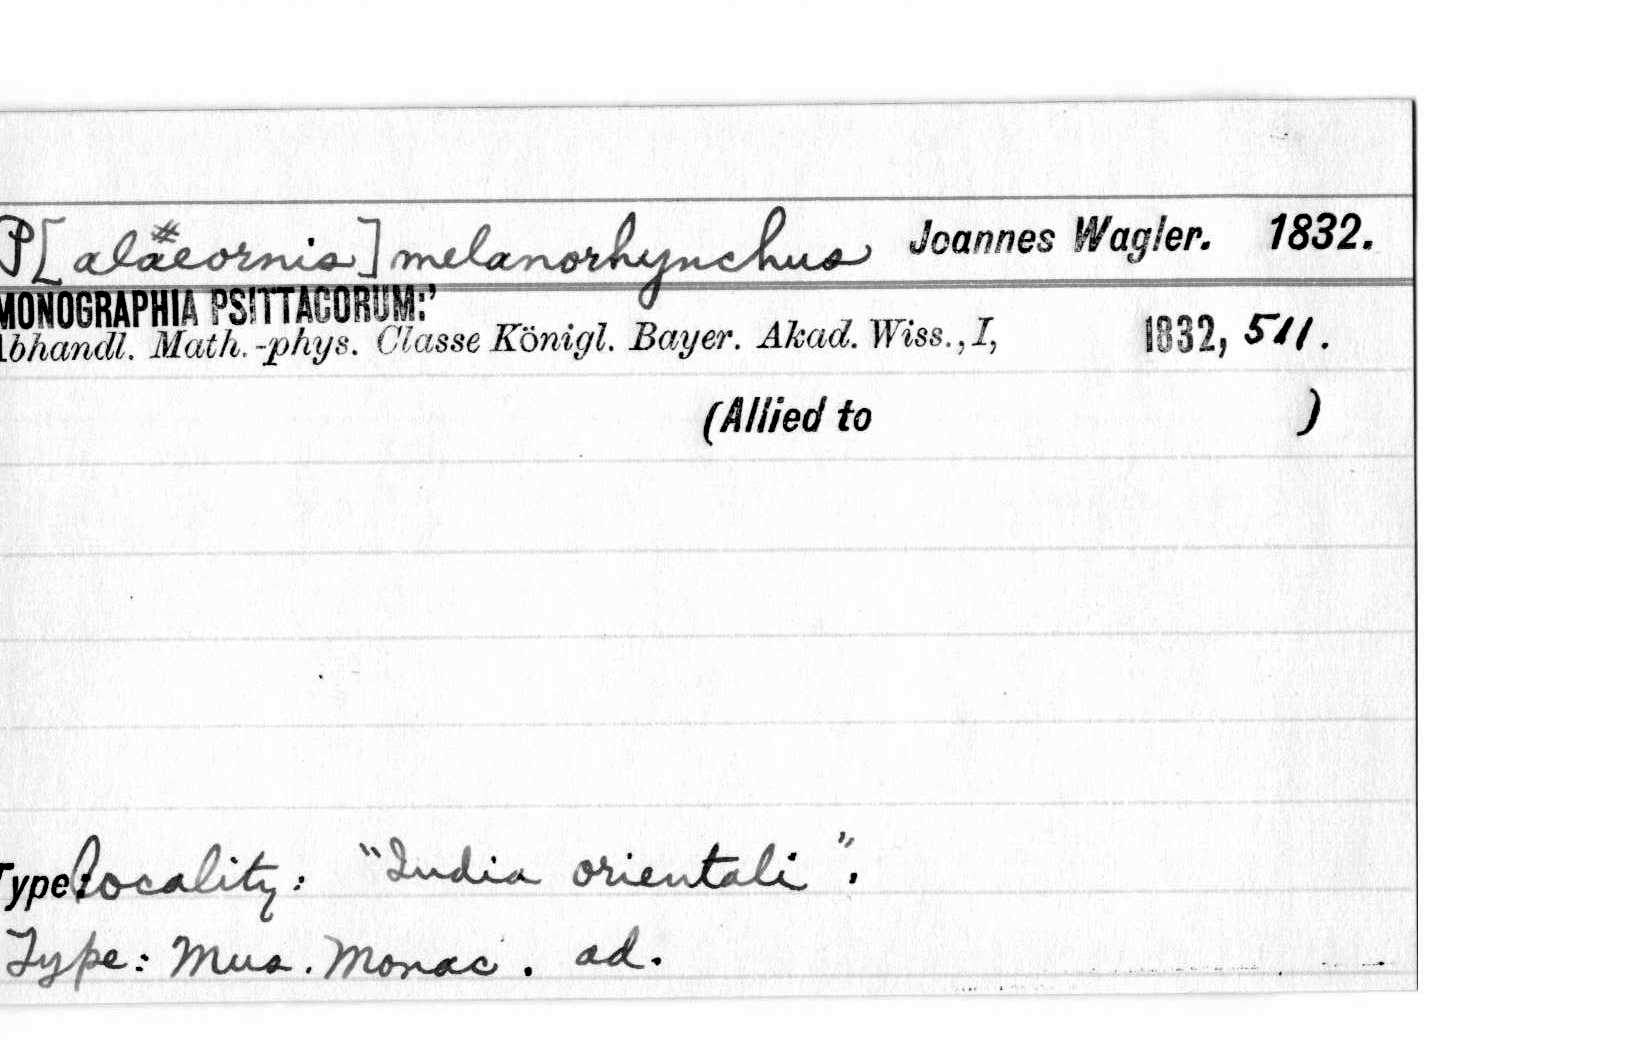 P[alaeornis] melanorhynchus Joannes Wagler. 1832.
MONOGRAPHIA PSITTACORUM:’
Abhandl. Math.-phys. Classe Königl. Bayer. Akad. Wiss., I, 1832, 511.
(Allied to )
Type: locality: "India orientali".
Type: Mus. Monac. ad.